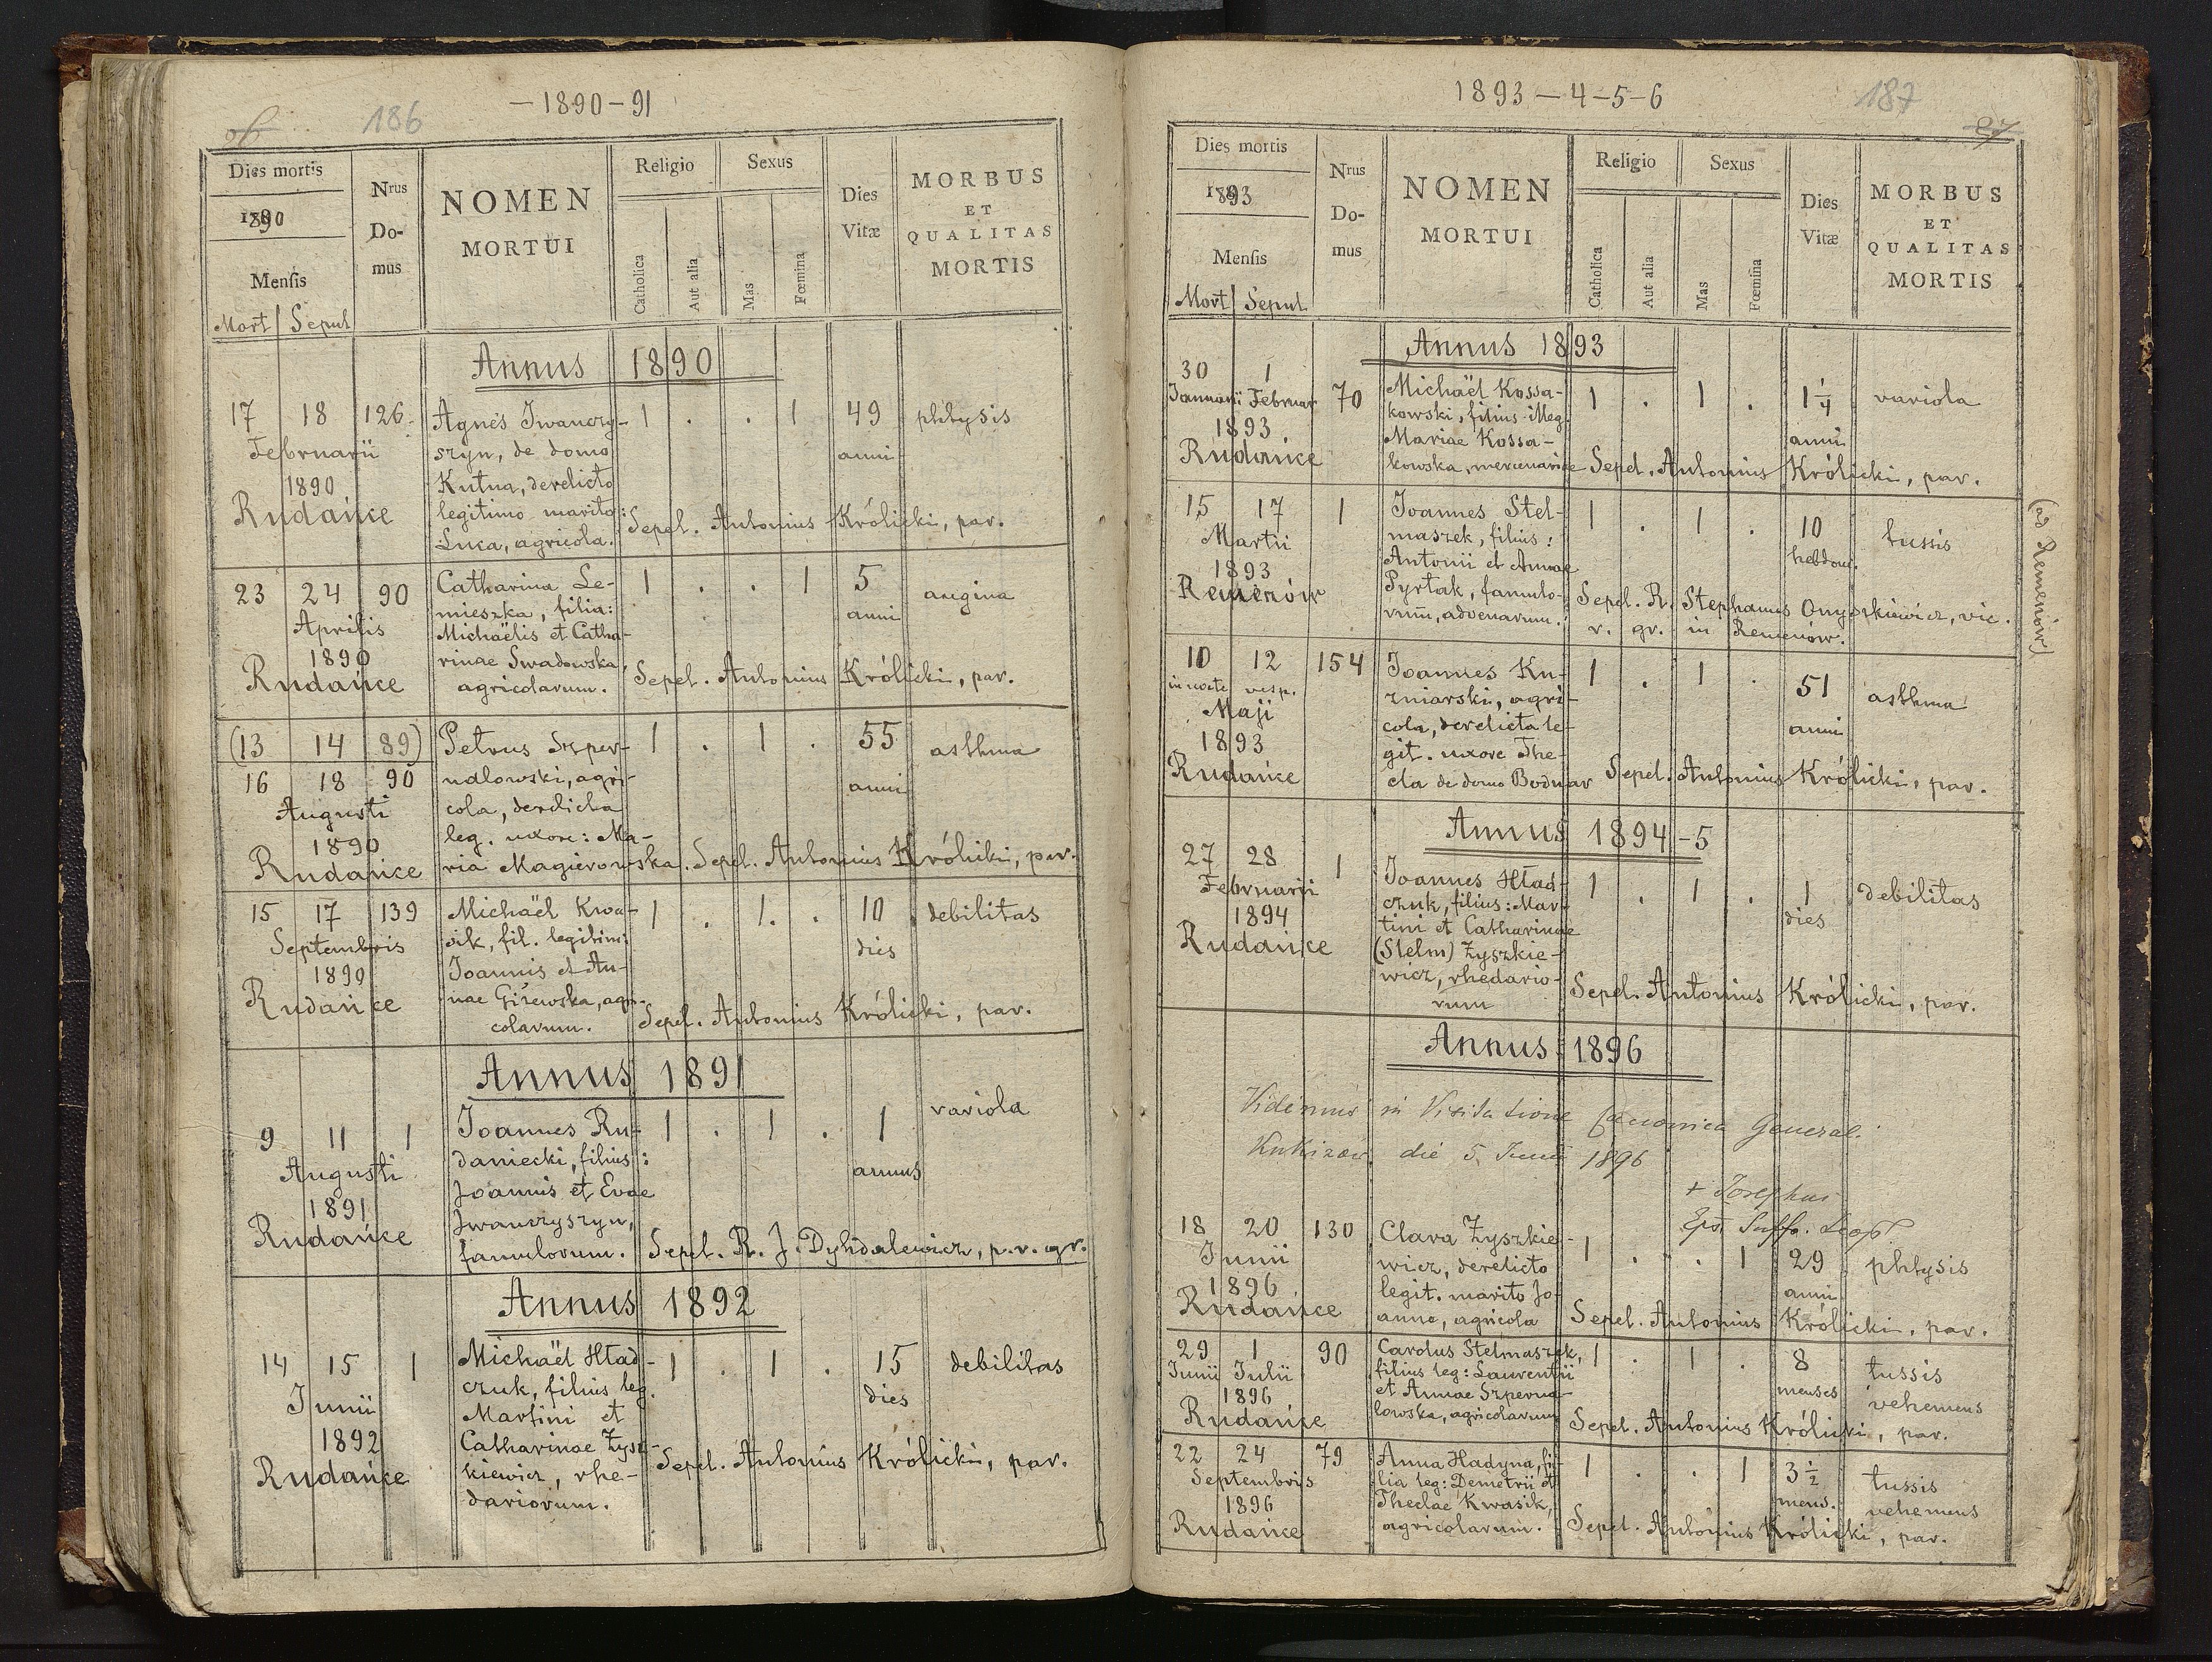 186
- 1890 - 91
Dies mortis
1890
Mensis
Mort | Sepul
Nrus
Do-
mus
NOMEN
MORTUI
Religio
Catholica
Aut alia
Sexus
Mas
Fœmina
Dies
Vitæ
MORBUS
ET
QUALITAS
MORTIS
Annus 1890
17 18 126. Agnes Iwanczy- 1 . . 1 49 phtysis
Februarii szyn, de domo anni
1890 Kutna, derelicto
Rudańce legitimo marito:
Luca, agricola. Sepel. Antonius Królicki, par.
23 24 90 Catharina Le- 1 . . 1 5 angina
Aprilis mieszka, filia: anni
1890 Michaëlis et Catha-
Rudańce rinae Swadowska,
agricolarum. Sepel. Antonius Królicki, par.
(13 14 89) Petrus Szper- 1 . 1 . 55 asthma
16 18 90 nalowski, agri- anni
Augusti cola, derelicta
1890 leg. uxore: Ma-
Rudańce ria Magierowska. Sepel. Antonius Królicki, par.
15 17 139 Michaël Kwa- 1 . 1. . 10 debilitas
Septembris sik, fil. legitim: dies
1890 Joannis et An-
Rudańce nae Giżewska, agri-
colarum. Sepel. Antonius Królicki, par.
Annus 1891
9 11 1 Joannes Ru- 1 . 1 . 1 variola
Augusti daniecki, filius: annus
1891 Joannis et Evae
Rudańce Iwanczyszyn,
famulorum. Sepel. R. J. Dyhdalewicz, p. r. gr.
Annus 1892
14 15 1 Michaël Hład- 1 . 1 . 15 debilitas
Junii czuk, filius leg. dies
1892 Martini et
Rudańce Catharinae Zysz-
kiewicz, rhe-
dariorum. Sepel. Antonius Królicki, par.
1893 - 4 - 5 - 6
187
27
Dies mortis
1893
Mensis
Mort | Sepul
Nrus
Do-
mus
NOMEN
MORTUI
Religio
Catholica
Aut alia
Sexus
Mas
Fœmina
Dies
Vitæ
MORBUS
ET
QUALITAS
MORTIS
Annus 1893
30 1 70 Michaël Kossa- 1 . 1 . 1 1/4 variola
Januarii Februar kowski, filius illeg. anni
1893 Mariae Kossa-
Rudańce kowska, mercenariae Sepel. Antonius Królicki, par.
15 17 1 Joannes Stel- 1 . 1 . 10 tussis
Martii maszek, filius: hebdom.
1893 Antonii et Annae
Remenów Pyrtak, famulo-
rum, advenarum. Sepel. R. Stephanus Onyszkiewicz, vic.
r. gr. in Remenów.
(ad Remenów)
10 12 154 Joannes Ku- 1 . 1 . 51 asthma
in nocte vesp. zniarski, agri- anni
Maji cola, derelicta le-
1893 git. uxore The-
Rudańce cla de domo Bodnar Sepel. Antonius Królicki, par.
Annus 1894 - 5
27 28 1 Joannes Hład- 1 . 1 . 1 debilitas
Februarii czuk, filius: Mar- dies
1894 tini et Catharinae
Rudańce (Stelm) Zyszkie-
wicz, rhedario-
rum Sepel. Antonius Królicki, par.
Annus 1896
Vidimus in Visitatione Canonica Generali
Kukizów die 5 Junii 1896
+ Josephus
Eps. Suffr. Leop.
18 20 130 Clara Zyszkie- 1 . . 1 29 phtysis
Junii wicz, derelicto anni
1896 legit. marito Jo-
Rudańce anne, agricola Sepel. Antonius Królicki, par.
29 1 90 Carolus Stelmaszek, 1 . 1 . 8 tussis
Junii Julii filius leg: Laurentii menses vehemens
1896 et Annae Szperna-
Rudańce lowska, agricolarum Sepel. Antonius Królicki, par.
22 24 79 Anna Hadyna, fi- 1 . . 1 3 1/2 tussis
Septembris lia leg: Demetrii et mens. vehemens
1896 Theclae Kwasik,
Rudańce agricolarum. Sepel. Antonius Królicki, par.